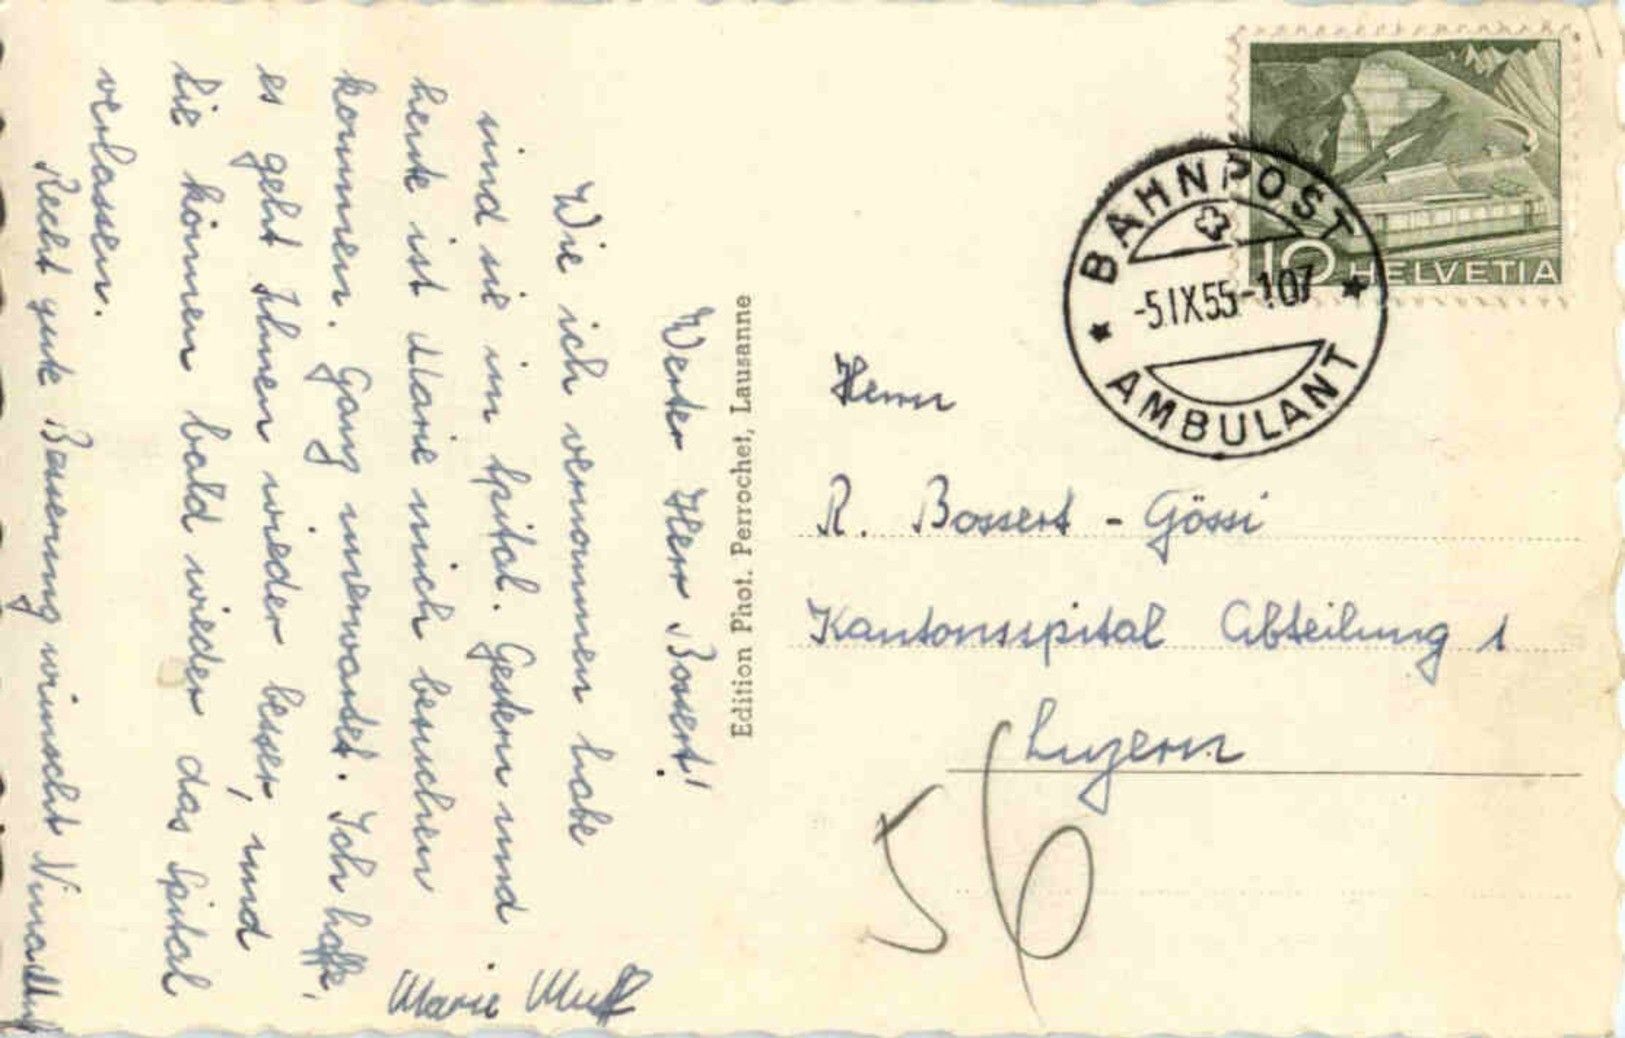 Werter Herr Bossert!
Wie ich vernommen habe
sind sie im Spital. Gestern und
heute ist Marie mich besuchen
kommen. Ganz unerwartet. Ich hoffe,
es geht Ihnen wieder besser, und
Sie können bald wieder das Spital
verlassen.
Recht gute Besserung wünscht Nina Muff
Marie Muff
Edition Phot. Perrochet, Lausanne
10 HELVETIA
BAHNPOST
-5.IX.55-107
AMBULANT
Herrn
R. Bossert - Gössi
Kantonsspital Abteilung 1
Luzern
56